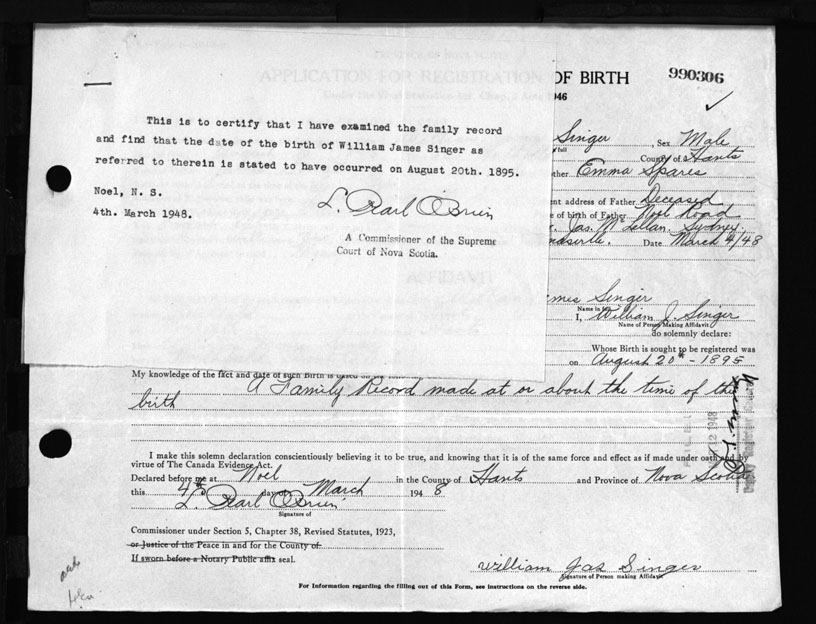 This is to certify that I have examined the family record
and find that the date of the birth of William James Singer as
referred to therein is stated to have occurred on August 20th. 1895.
Noel, N. S.
4th. March 1948.
L. Pearl O'Brien
A Commissioner of the Supreme
Court of Nova Scotia.
APPLICATION FOR REGISTRATION OF BIRTH
990306
Singer, Sex Male
County of Hants
Emma Spares
address of Father Deceased
of birth of Father Noel Road
Jas. McLellan, Sydney,
Date March 4/48
AFFIDAVIT
Singer
Name in full
I, William J. Singer
Name of Person Making Affidavit
do solemnly declare:
Whose Birth is sought to be registered was
on August 20th - 1895
My knowledge of the fact and date of such Birth is based on the following
A Family Record made at or about the time of the
birth
I make this solemn declaration conscientiously believing it to be true, and knowing that it is of the same force and effect as if made under oath and by
virtue of The Canada Evidence Act.
Declared before me at Noel in the County of Hants and Province of Nova Scotia
this 4th day of March 1948
L. Pearl O'Brien
Signature of
Commissioner under Section 5, Chapter 38, Revised Statutes, 1923,
or Justice of the Peace in and for the County of
If sworn before a Notary Public affix seal.
William Jas Singer
Signature of Person making Affidavit
For Information regarding the filling out of this Form, see instructions on the reverse side.